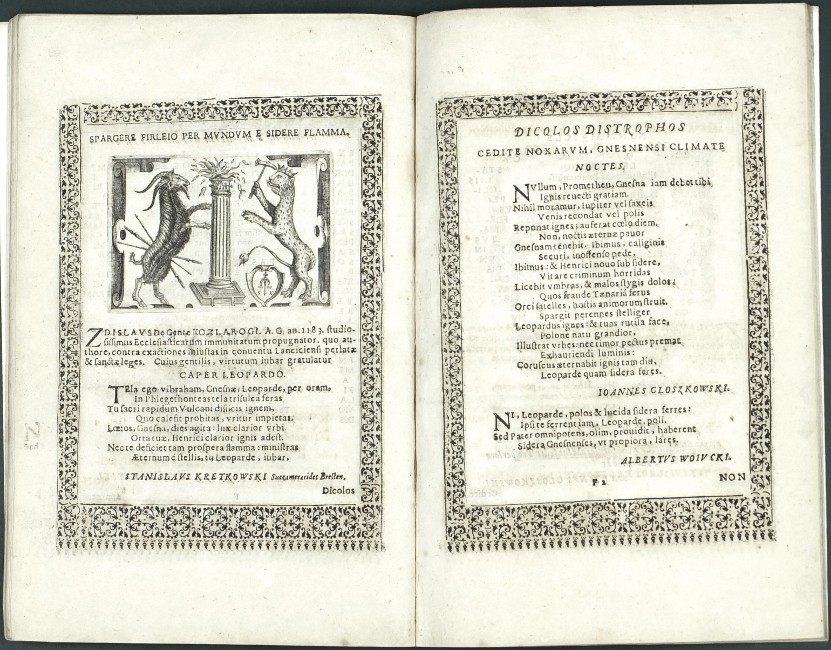 SPARGERE FIRLEIO PER MVNDVM E SIDERE FLAMMA.
ZDISLAVS De Gente KOZLAROGI. A. G. an. 1183. studio-
sissimus Ecclesiasticarum immunitatum propugnator, quo au-
thore, contra exactiones iniustas in conuentu Lanciciensi perlatæ
& sanctæ leges. Cuius gentilis, virtutum iubar gratulatur
CAPER LEOPARDO.
TEla ego vibrabam, Gnesnæi Leoparde, per oram,
In Phlegethonteas tela trisulca feras
Tu sacri rapidum Vulcani dissicis ignem,
Quo calesit probitas, vritur impietas.
Lætos, Gnesna, dies agita: lux clarior vrbi
Orta tuæ, Henrici clarior ignis adest.
Nec te deficiet tam prospera flamma: ministras
Æternum è stellis, tu Leoparde, iubar.
STANISLAVS KRETKOWSKI Succamerarides Bresten.
Dicolos
DICOLOS DISTROPHOS
CEDITE NOXARVM, GNESNENSI CLIMATE
NOCTES.
NVllum, Prometheu, Gnesna iam debet tibi
Ignis reuecti gratiam.
Nihil moramur, Iupiter vel saxeis
Venis recondat vel polis
Reponat ignes: auferat cœlo diem,
Non, noctis æternæ pauor
Gnesnam tenebit. Ibimus, caliginis
Securi, inoffenso pede,
Ibimus: & Henrici nouo sub sidere,
Vitare criminum horridas
Licebit vmbras, & malos stygis dolos;
Quos fraude Tænaria ferus
Orci satelles, hostis animorum struit.
Spargit perennes stelliger
Leopardus ignes: & tuas rutila face,
Polone natu grandior,
Illustrat vrbes: nec timor pectus premat
Exhauriendi luminis:
Coruscus æternabit ignis tam diu,
Leoparde quam sidera feres.
IOANNES GLOSZKOWSKI.
NI, Leoparde, polos & lucida sidera ferres:
Ipsi te ferrent iam, Leoparde, poli.
Sed Pater omnipotens, olim, prouidit, haberent
Sidera Gnesnenses, vt propiora, lares.
ALBERTVS WOIVCKI.
F 2
NON